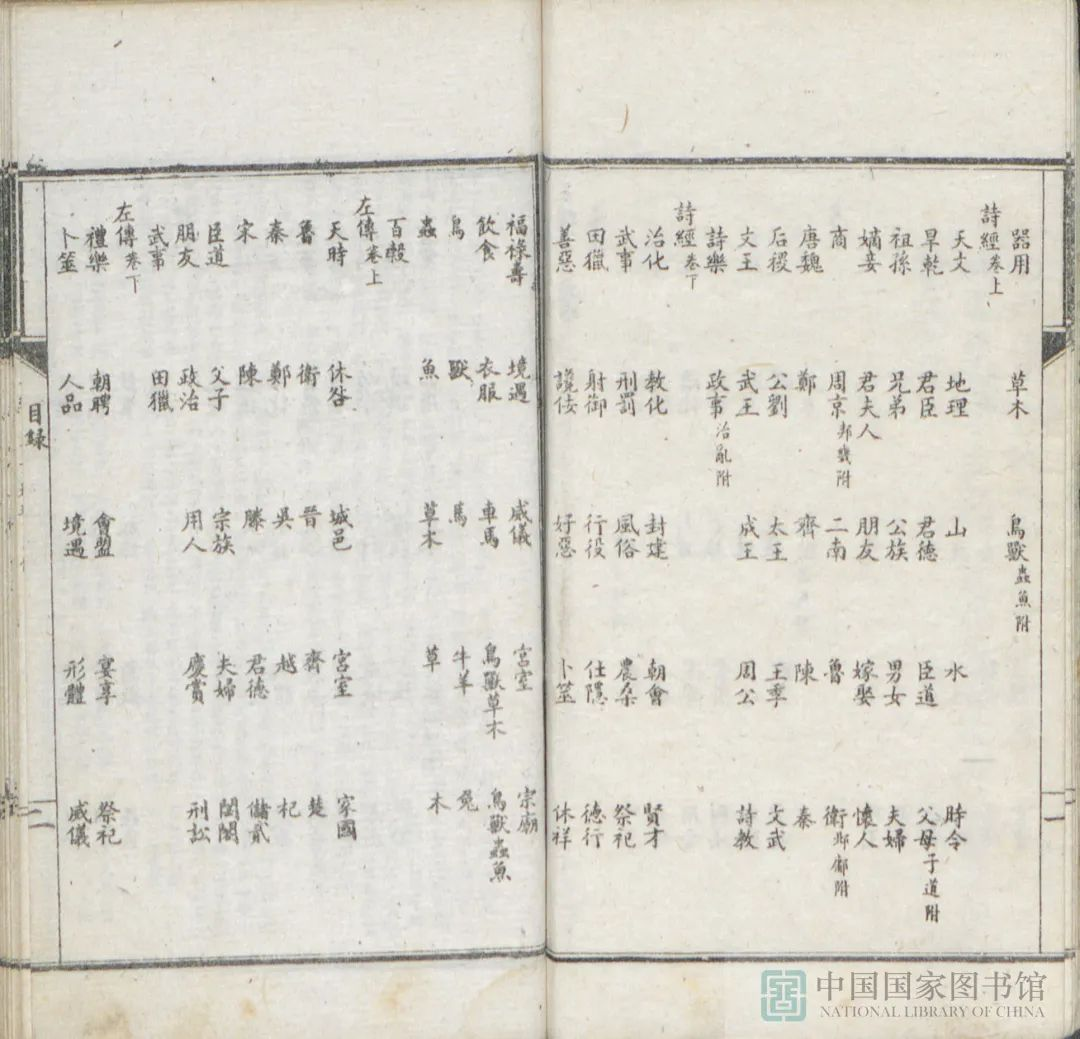 器用 草木 鳥獸蟲魚附
詩經卷上
天文 地理 山 水 時令
旱乾 君臣 君德 臣道 父母子道附
祖孫 兄弟 公族 男女 夫婦
嫡妾 君夫人 朋友 嫁娶 懷人
商 周京邦畿附 二南 魯 衛邶鄘附
唐魏 鄭 齊 陳 秦
后稷 公劉 太王 王季 文武
文王 武王 成王 周公 詩教
詩樂 政事治亂附
詩經卷下
治化 教化 封建 朝會 賢才
武事 刑罰 風俗 農桑 祭祀
田獵 射御 行役 仕隱 德行
善惡 讒佞 好惡 卜筮 休祥
福祿壽 境遇 威儀 宮室 宗廟
飲食 衣服 車馬 鳥獸草木 鳥獸蟲魚
鳥 獸 馬 牛羊 兔
蟲 魚 草木 草 木
百穀
左傳卷上
天時 休咎 城邑 宮室 家國
魯 衛 晉 齊 楚
秦 鄭 吳 越 杞
宋 陳 滕 君德 儲貳
臣道 父子 宗族 夫婦 閨閫
朋友 政治 用人 慶賞 刑訟
武事 田獵
左傳卷下
禮樂 朝聘 會盟 宴享 祭祀
卜筮 人品 境遇 形體 威儀
目録
二
中国国家图书馆
NATIONAL LIBRARY OF CHINA